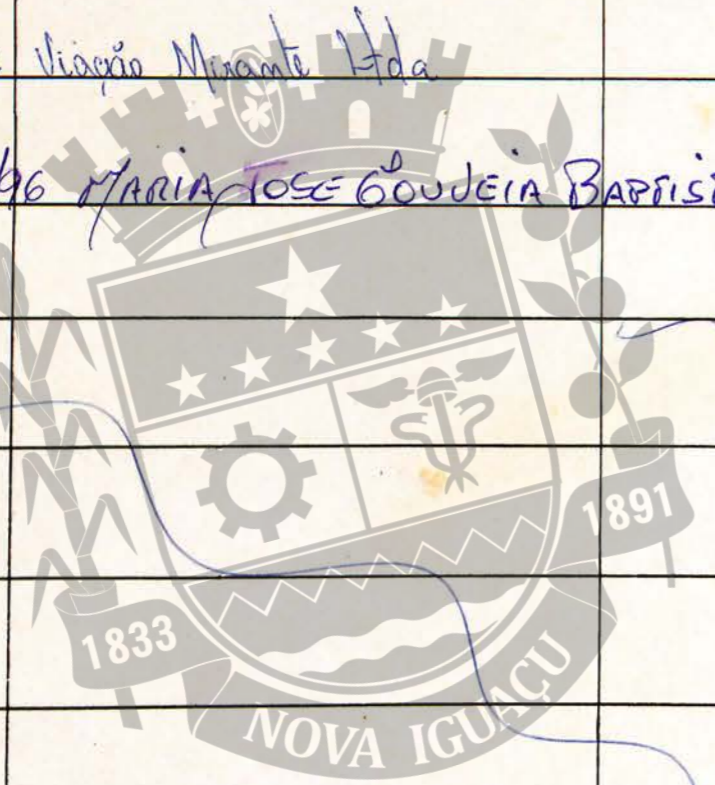 Viação Mirante Ltda
/96 MARIA JOSE GOUVEIA BAPTIS
1891
1833
NOVA IGUAÇU